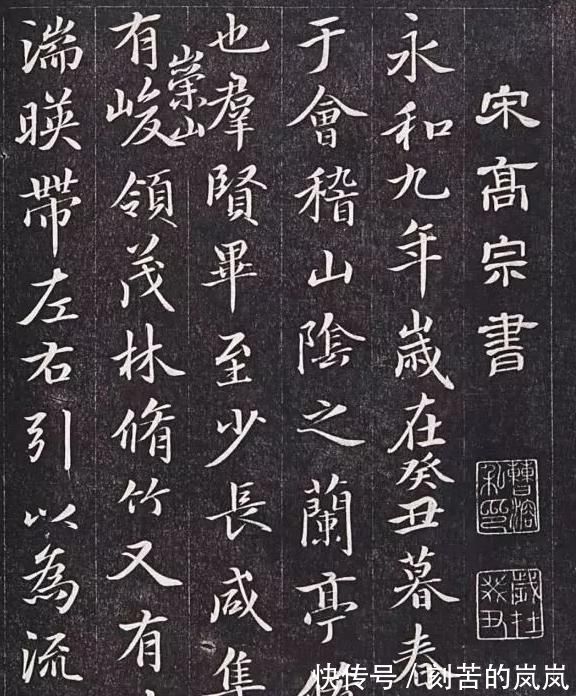 宋髙宗書
曹溶私印
永和九年歲在癸丑暮春
于會稽山陰之蘭亭
也羣賢畢至少長咸集
有崇山峻領茂林脩竹又有
湍暎帶左右引以為流
快传号/刻苦的岚岚